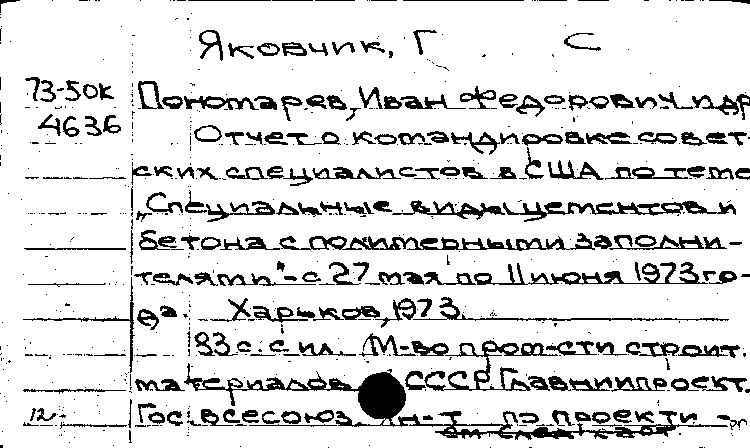 Яковчик, Г С
73-50к Пономарев, Иван Федорович и др
4636 Отчет о командировке совет-
ских специалистов в США по теме
„Специальные виды цементов и
бетона с полимерными заполни-
телями" - с 27 мая по 11 июня 1973 го-
да. Харьков, 1973.
83 с. с ил. (М-во пром-сти строит.
материалов СССР. Главниипроект.
12 - Гос. всесоюз. ин-т по проекти -
см след карт